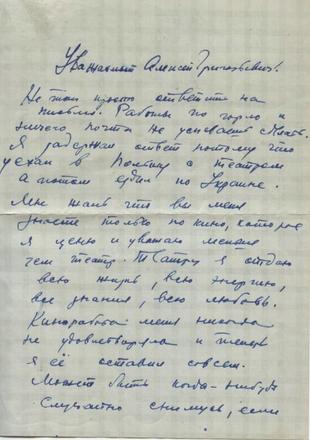 Уважаемый Алексей Григорьевич!
Не так просто ответить на
письмо. Работы по горло и
ничего почти не успеваешь
Я задержал ответ потому что
уехал в с театром
а потом ездил по Украине.
Мне жаль что вы меня
знаете только по кино, которое
я ценю и уважаю меньше
чем театр. Театру я отдаю
всю жизнь, всю энергию,
все знания, всю любовь.
Киноработа меня никогда
не удовлетворяла и теперь
я её оставил совсем.
Может быть когда-нибудь
случайно снимусь, если